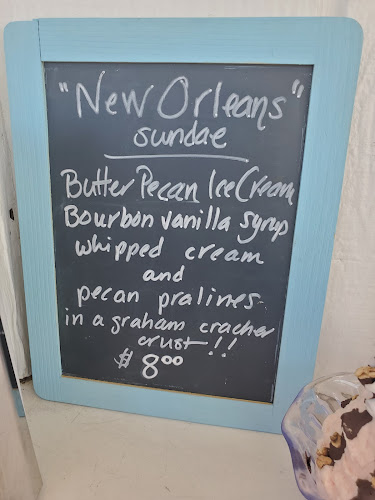 "New Orleans"
sundae
Butter Pecan Ice Cream
Bourbon vanilla syrup
whipped cream
and
pecan pralines
in a graham cracker
crust!!
$ 8.00